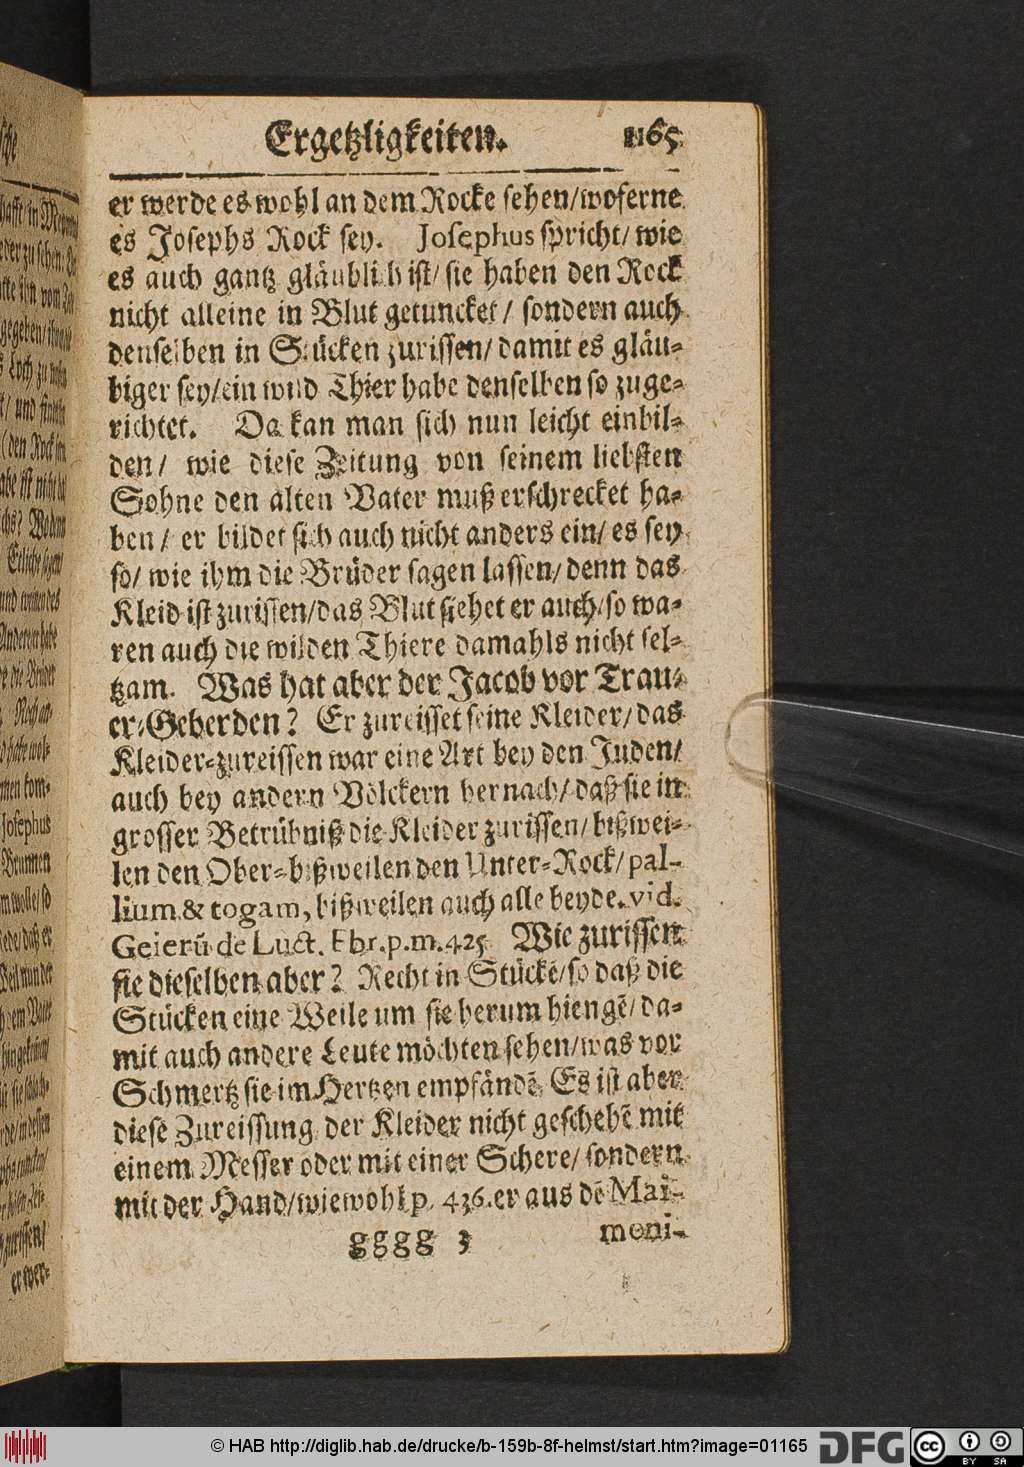 Ergetzligkeiten. 1165
er werde es wohl an dem Rocke sehen/woferne
es Josephs Rock sey. Josephus spricht/ wie
es auch gantz gläublich ist/ sie haben den Rock
nicht alleine in Blut getuncket/ sondern auch
denselben in Stücken zurissen/ damit es gläu-
biger sey/ein wild Thier habe denselben so zuge-
richtet. Da kan man sich nun leicht einbil-
den/ wie diese Zeitung von seinem liebsten
Sohne den alten Vater muß erschrecket ha-
ben/ er bildet sich auch nicht anders ein/ es sey
so/ wie ihm die Brüder sagen lassen/ denn das
Kleid ist zurissen/das Blut siehet er auch/so wa-
ren auch die wilden Thiere damahls nicht sel-
tzam. Was hat aber der Jacob vor Trau-
er-Geberden? Er zureisset seine Kleider/ das
Kleider-zureissen war eine Art bey den Juden/
auch bey andern Völckern hernach/ daß sie in
grosser Betrübniß die Kleider zurissen/ bißwei-
len den Ober- bißweilen den Unter-Rock/ pal-
lium & togam, bißweilen auch alle beyde. vid.
Geierū de Luct. Ebr. p. m. 425. Wie zurissen
sie dieselben aber? Recht in Stückē/ so daß die
Stücken eine Weile um sie herum hiengē/ da-
mit auch andere Leute möchten sehen/was vor
Schmertz sie im Hertzen empfändē. Es ist aber
diese Zureissung der Kleider nicht geschehē mit
einem Messer oder mit einer Schere/ sondern
mit der Hand/wiewohl p. 436. er aus dē Mai-
gggg 3 moni-
er wer-
Josephus
Brunnen
© HAB http://diglib.hab.de/drucke/b-159b-8f-helmst/start.htm?image=01165
DFG
cc BY SA